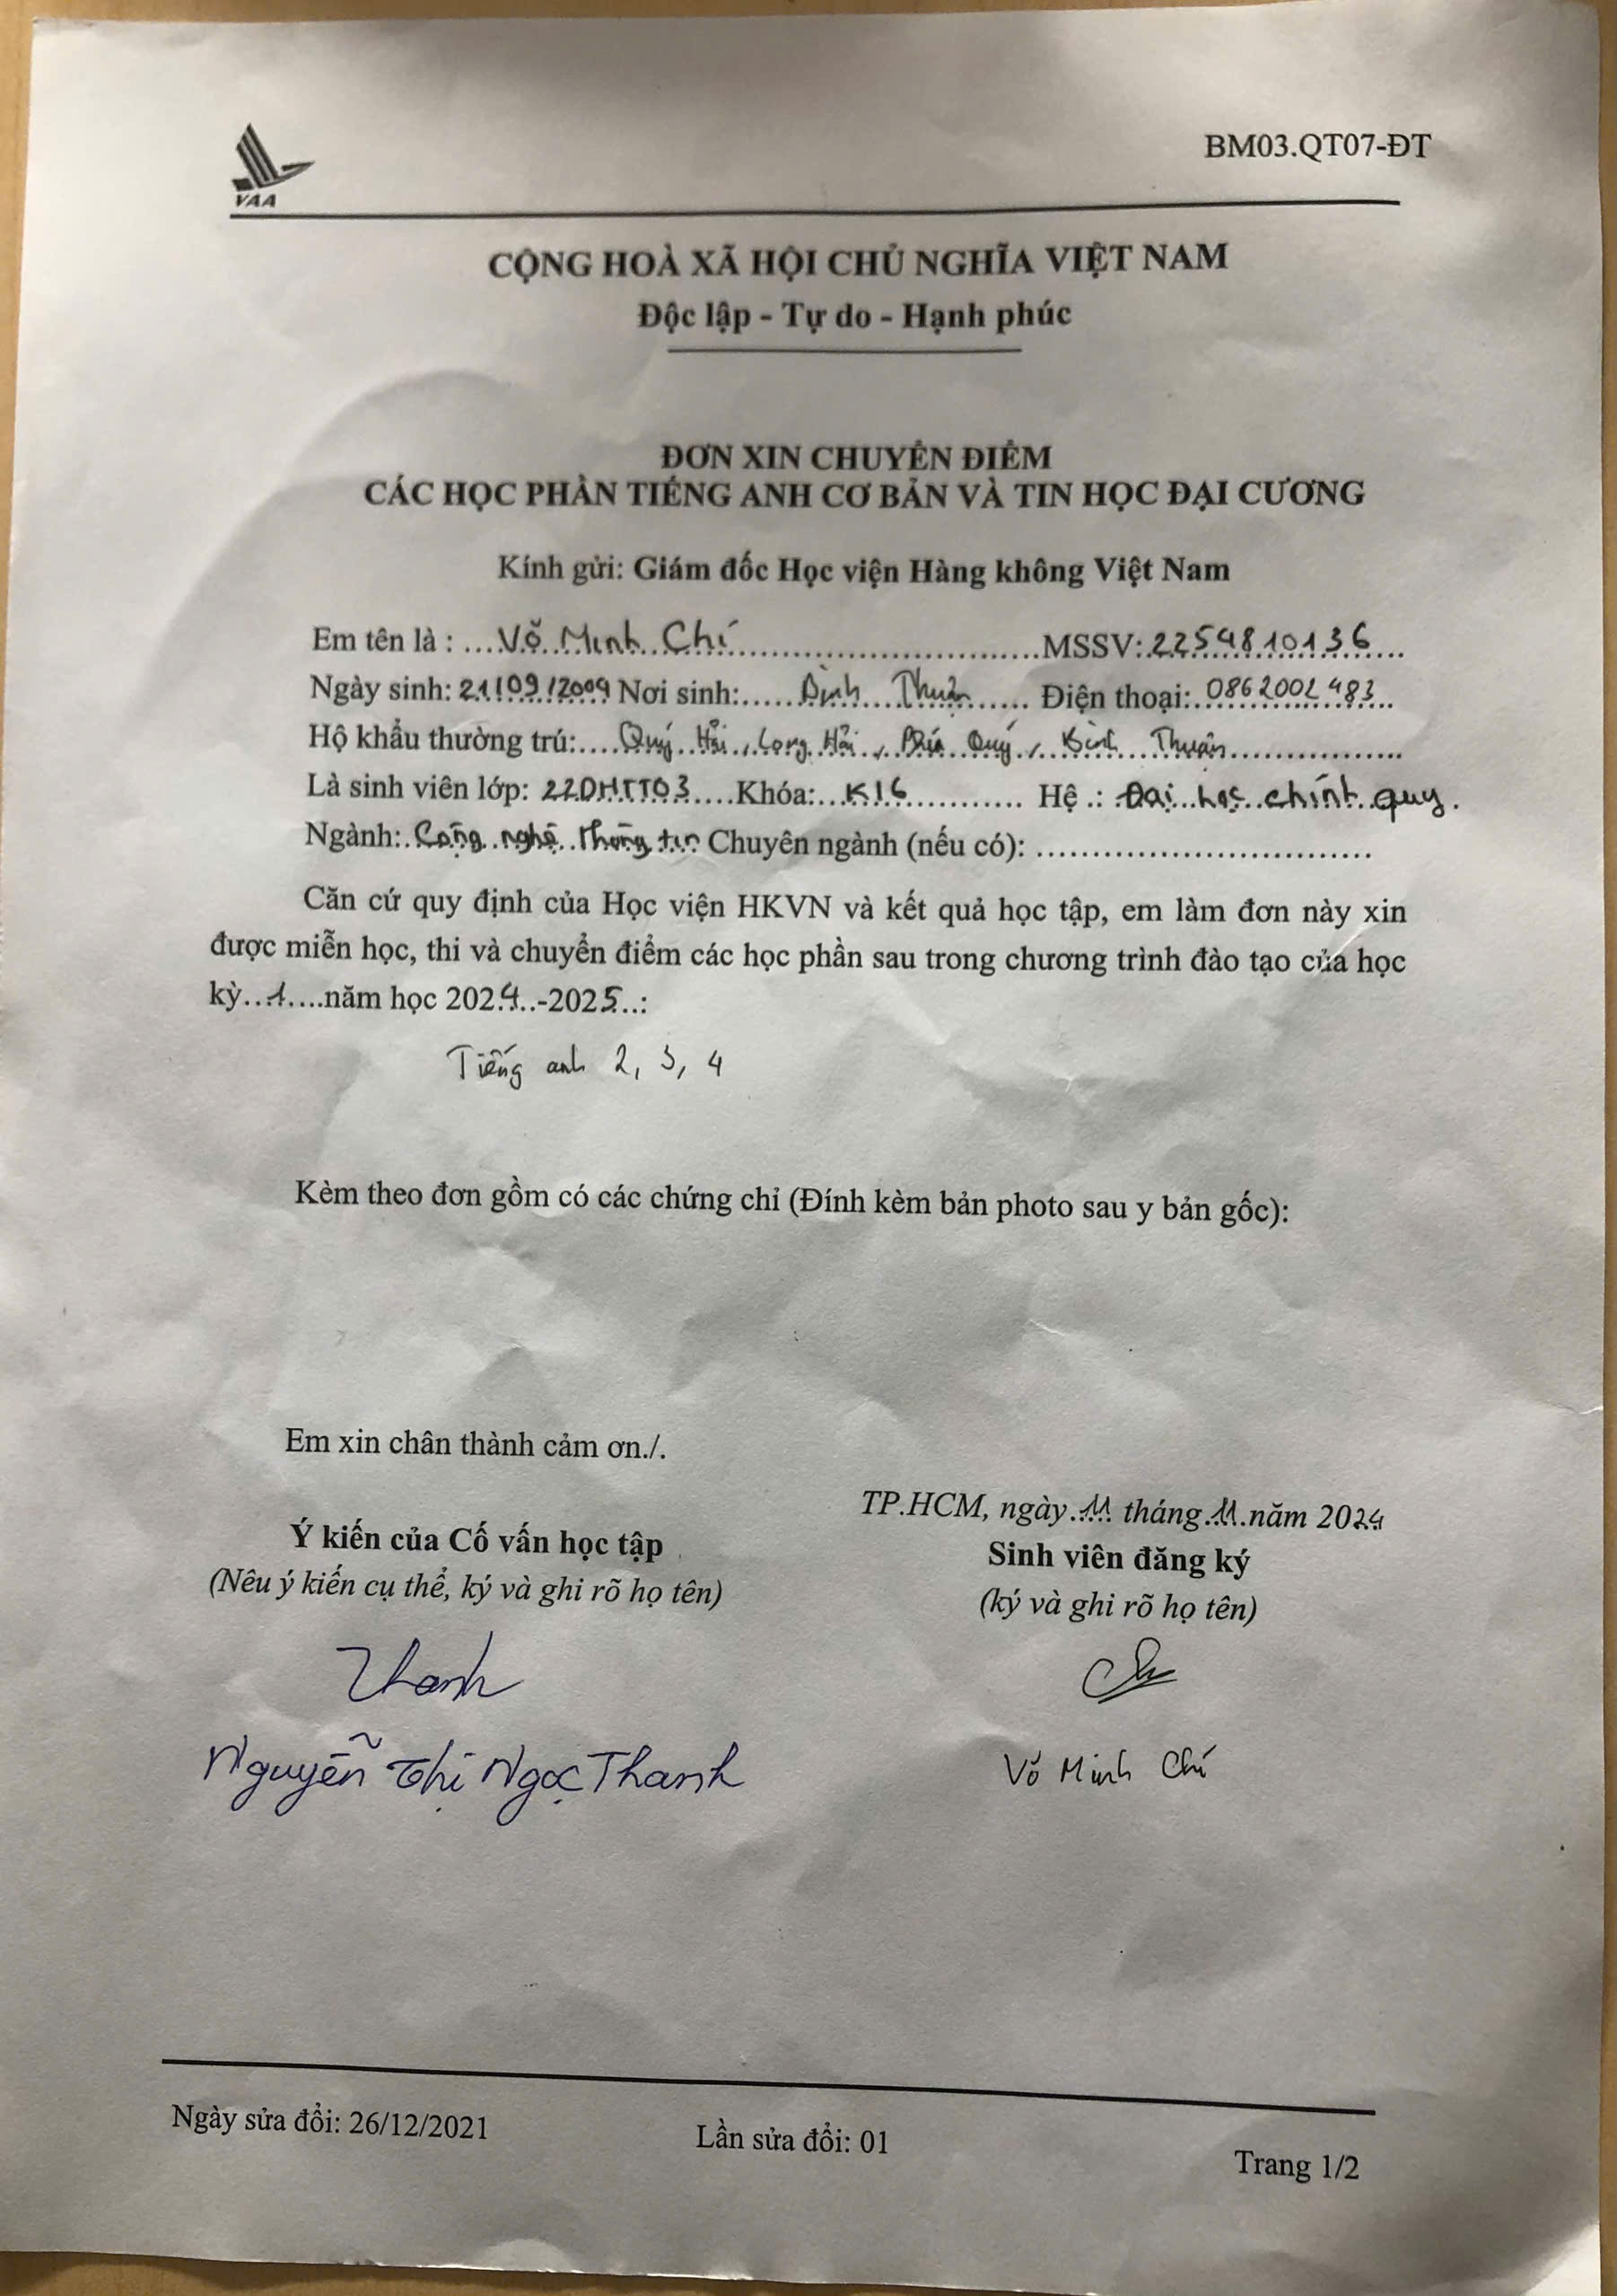 VAA
BM03.QT07-ĐT
CỘNG HOÀ XÃ HỘI CHỦ NGHĨA VIỆT NAM
Độc lập - Tự do - Hạnh phúc
ĐƠN XIN CHUYỂN ĐIỂM
CÁC HỌC PHẦN TIẾNG ANH CƠ BẢN VÀ TIN HỌC ĐẠI CƯƠNG
Kính gửi: Giám đốc Học viện Hàng không Việt Nam
Em tên là : Võ Minh Chí MSSV: 2254810136
Ngày sinh: 21/09/2004 Nơi sinh: Bình Thuận Điện thoại: 0862002483
Hộ khẩu thường trú: Quý Hải, Long Hải, Phú Quý, Bình Thuận
Là sinh viên lớp: 22DHTT03 Khóa: K16 Hệ .: Đại học chính quy.
Ngành: Công nghệ thông tin Chuyên ngành (nếu có):
Căn cứ quy định của Học viện HKVN và kết quả học tập, em làm đơn này xin
được miễn học, thi và chuyển điểm các học phần sau trong chương trình đào tạo của học
kỳ 1 năm học 2024-2025:
Tiếng anh 2, 3, 4
Kèm theo đơn gồm có các chứng chỉ (Đính kèm bản photo sau y bản gốc):
Em xin chân thành cảm ơn./.
TP.HCM, ngày 11 tháng 11 năm 2024
Ý kiến của Cố vấn học tập
Sinh viên đăng ký
(Nêu ý kiến cụ thể, ký và ghi rõ họ tên)
(ký và ghi rõ họ tên)
Thanh
Nguyễn Thị Ngọc Thanh
Võ Minh Chí
Ngày sửa đổi: 26/12/2021
Lần sửa đổi: 01
Trang 1/2